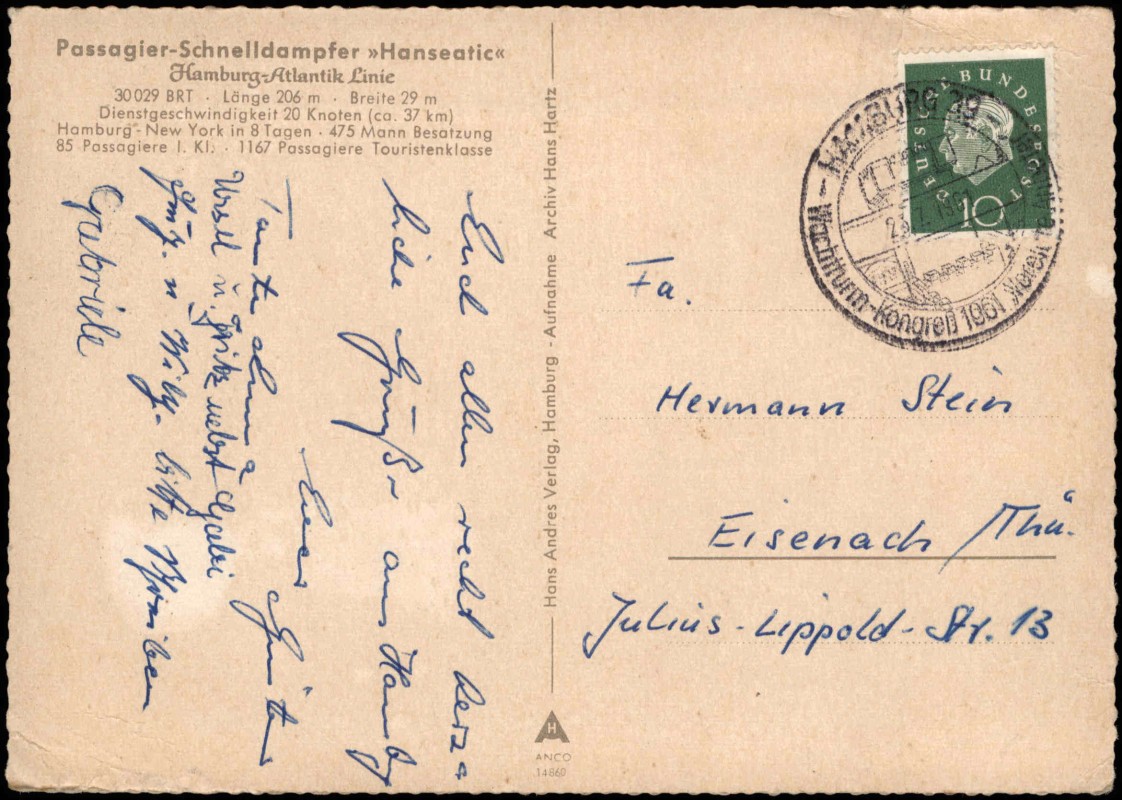 Passagier-Schnelldampfer »Hanseatic«
Hamburg-Atlantik Linie
30029 BRT · Länge 206 m · Breite 29 m
Dienstgeschwindigkeit 20 Knoten (ca. 37 km)
Hamburg-New York in 8 Tagen · 475 Mann Besatzung
85 Passagiere I. Kl. · 1167 Passagiere Touristenklasse
Euch allen recht herz
liche Grüße aus Hamburg
Euer Günter
Tante
Ursel u. Fritz nebst Gabi
bitte
Gabriele
Hans Andres Verlag, Hamburg - Aufnahme Archiv Hans Hartz
H
ANCO
14860
DEUTSCHE BUNDESPOST
10
HAMBURG 39
1961
Wachtturm-Kongreß 1961
Fa.
Hermann Stein
Eisenach /Thü.
Julius-Lippold-Str. 13